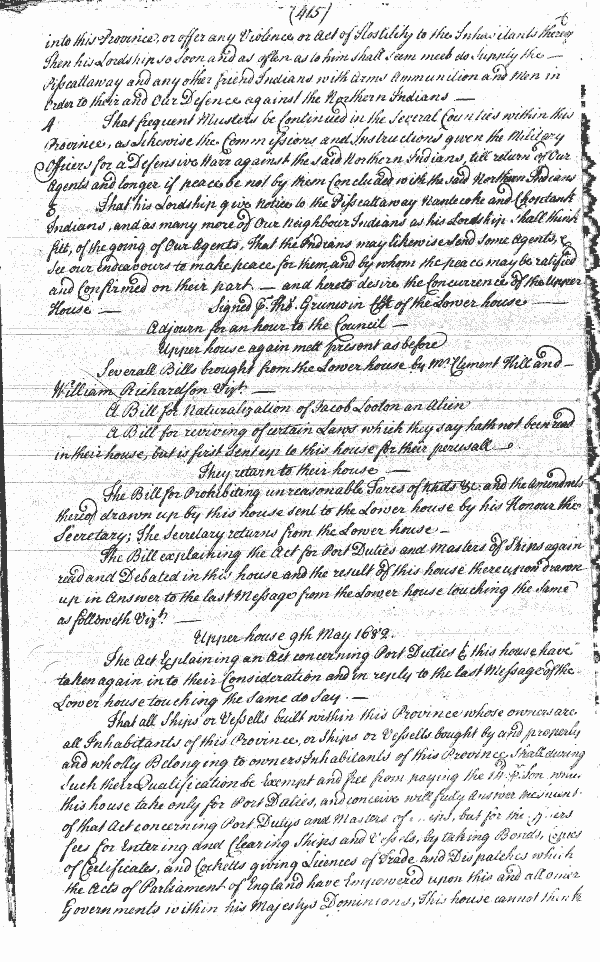 (415)
into this Province, or offer any Violence or Act of Hostility to the Inhabitants thereof
Then his Lordship so soon and as often as to him shall Seem meet do Supply the —
Pisscattaway and any other friend Indians with Arms Ammunition and Men in
order to their and Our Defence against the Northern Indians —
4 That frequent Musters be Continued in the Several Counties within this
Province, as Likewise the Commissions and Instructions given the Military
Officers for a Defensive Warr against the said Northern Indians, till return of Our
Agents and longer if peace be not by them Concluded with the said Northern Indians
5 That his Lordship give notice to the Pisscattaway Nantecoke and Choptank
Indians, and as many more of Our Neighbour Indians as his Lordship Shall think
fitt, of the going of Our Agents, That the Indians may likewise send Some Agents, &
See our Endeavours to make peace for them, and by whom the peace may be ratified
and Confirmed on their part. — and hereto desire the Concurrence of the Upper
House — Signed p. Tho. Grunwin Clk of the Lower house —
Adjourn for an hour to the Council —
Upper house again mett present as before
Severall Bills brought from the Lower house by Mr. Clement Hill and —
William Richardson Vizt. —
A Bill for Naturalization of Jacob Looton an Alien
A Bill for reviving of certain Laws which they say hath not been read
in their house, but is first sent up to this house for their perusall —
They return to their house —
The Bill for Prohibiting unreasonable Fares of &c. and the Amendmts
thereof drawn up by this house sent to the Lower house by his Honour the
Secretary; The Secretary returns from the Lower house —
The Bill explaining the Act for Port Duties and Masters of Ships again
read and Debated in this house and the result of this house thereupon drawn
up in Answer to the last Message from the Lower house touching the Same
as followeth Vizt. —
Upper house 9th May 1682.
The Act Explaining an Act concerning Port Duties & this house have
taken again into their Consideration and in reply to the last Message of the
Lower house touching the same do say. —
That all Ships or Vessells built within this Province whose owners are
all Inhabitants of this Province, or Ships or Vessells bought by and properly
and wholly Belonging to owners Inhabitants of this Province, Shall during
Such their Qualification be Exempt and free from paying the 14d p. Ton
this house take only for Port Duties, and conceive will fully Answer
of that Act concerning Port Dutys and Masters of but for the
fees for Entering and Clearing Ships and Vessels, by taking Bonds,
of Certificates, and Cocketts giving Licences of Trade and Dispatches which
the Acts of Parliament of England have Empowered upon this and all other
Governments within his Majestys Dominions, This house cannot think